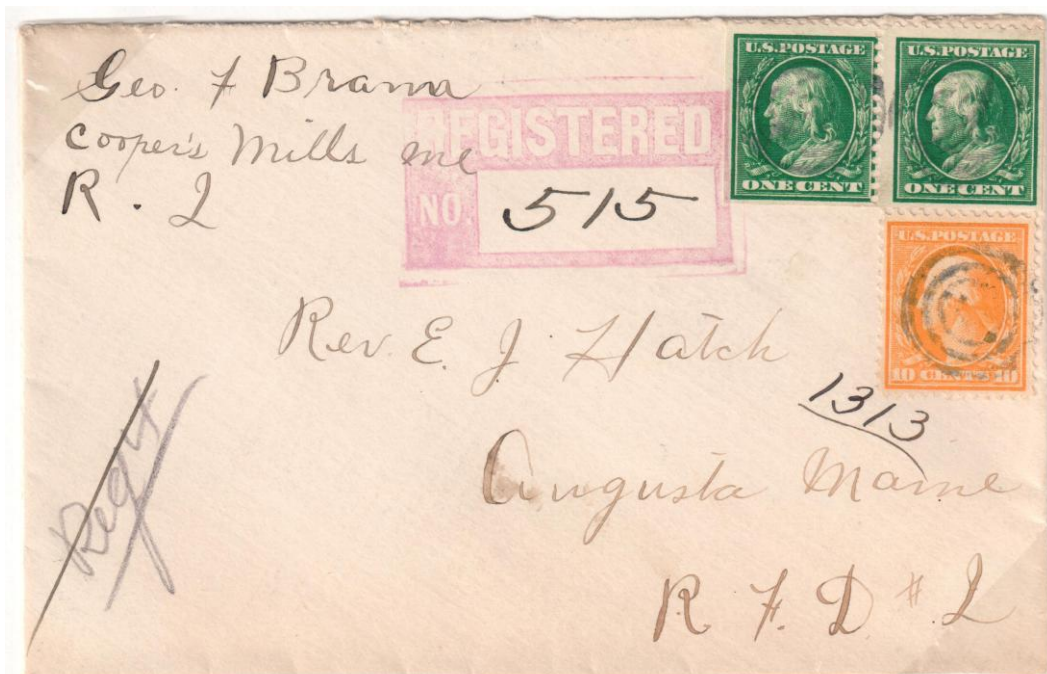 Geo. F Brann
Cooper's Mills Me
R. 2
REGISTERED
NO. 515
U.S. POSTAGE
ONE CENT
U.S. POSTAGE
ONE CENT
U.S. POSTAGE
10 CENTS 10
Rev. E. J. Hatch
1313
Augusta Maine
R. F. D # 2